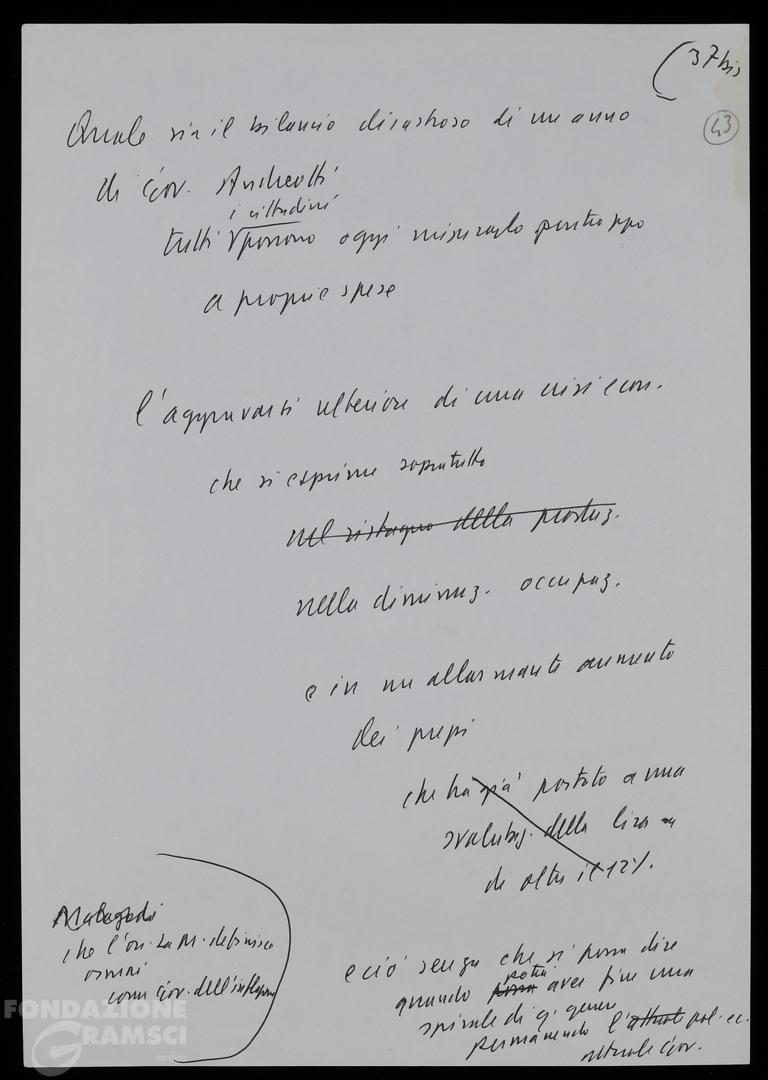 (37 bis
43
Quale sia il bilancio disastroso di un anno
di Gov. Andreotti
i cittadini
tutti possono oggi misurarlo purtroppo
a proprie spese
l'aggravarsi ulteriore di una crisi econ.
che si esprime sopratutto
nel ristagno della produz.
nella diminuz. occupaz.
e in un allarmante aumento
dei prezzi
che ha già portato a una
svalutaz. della lira
di oltre il 12%.
Malagodi
che l'on. La M. definisce
ormai
come Gov. dell'inflazione
e ciò senza che si possa dire
potrà
quando possa aver fine una
spirale di q. genere
permanendo l'attuale pol. ec.
attuale Gov.
FONDAZIONE
GRAMSCI
onlus